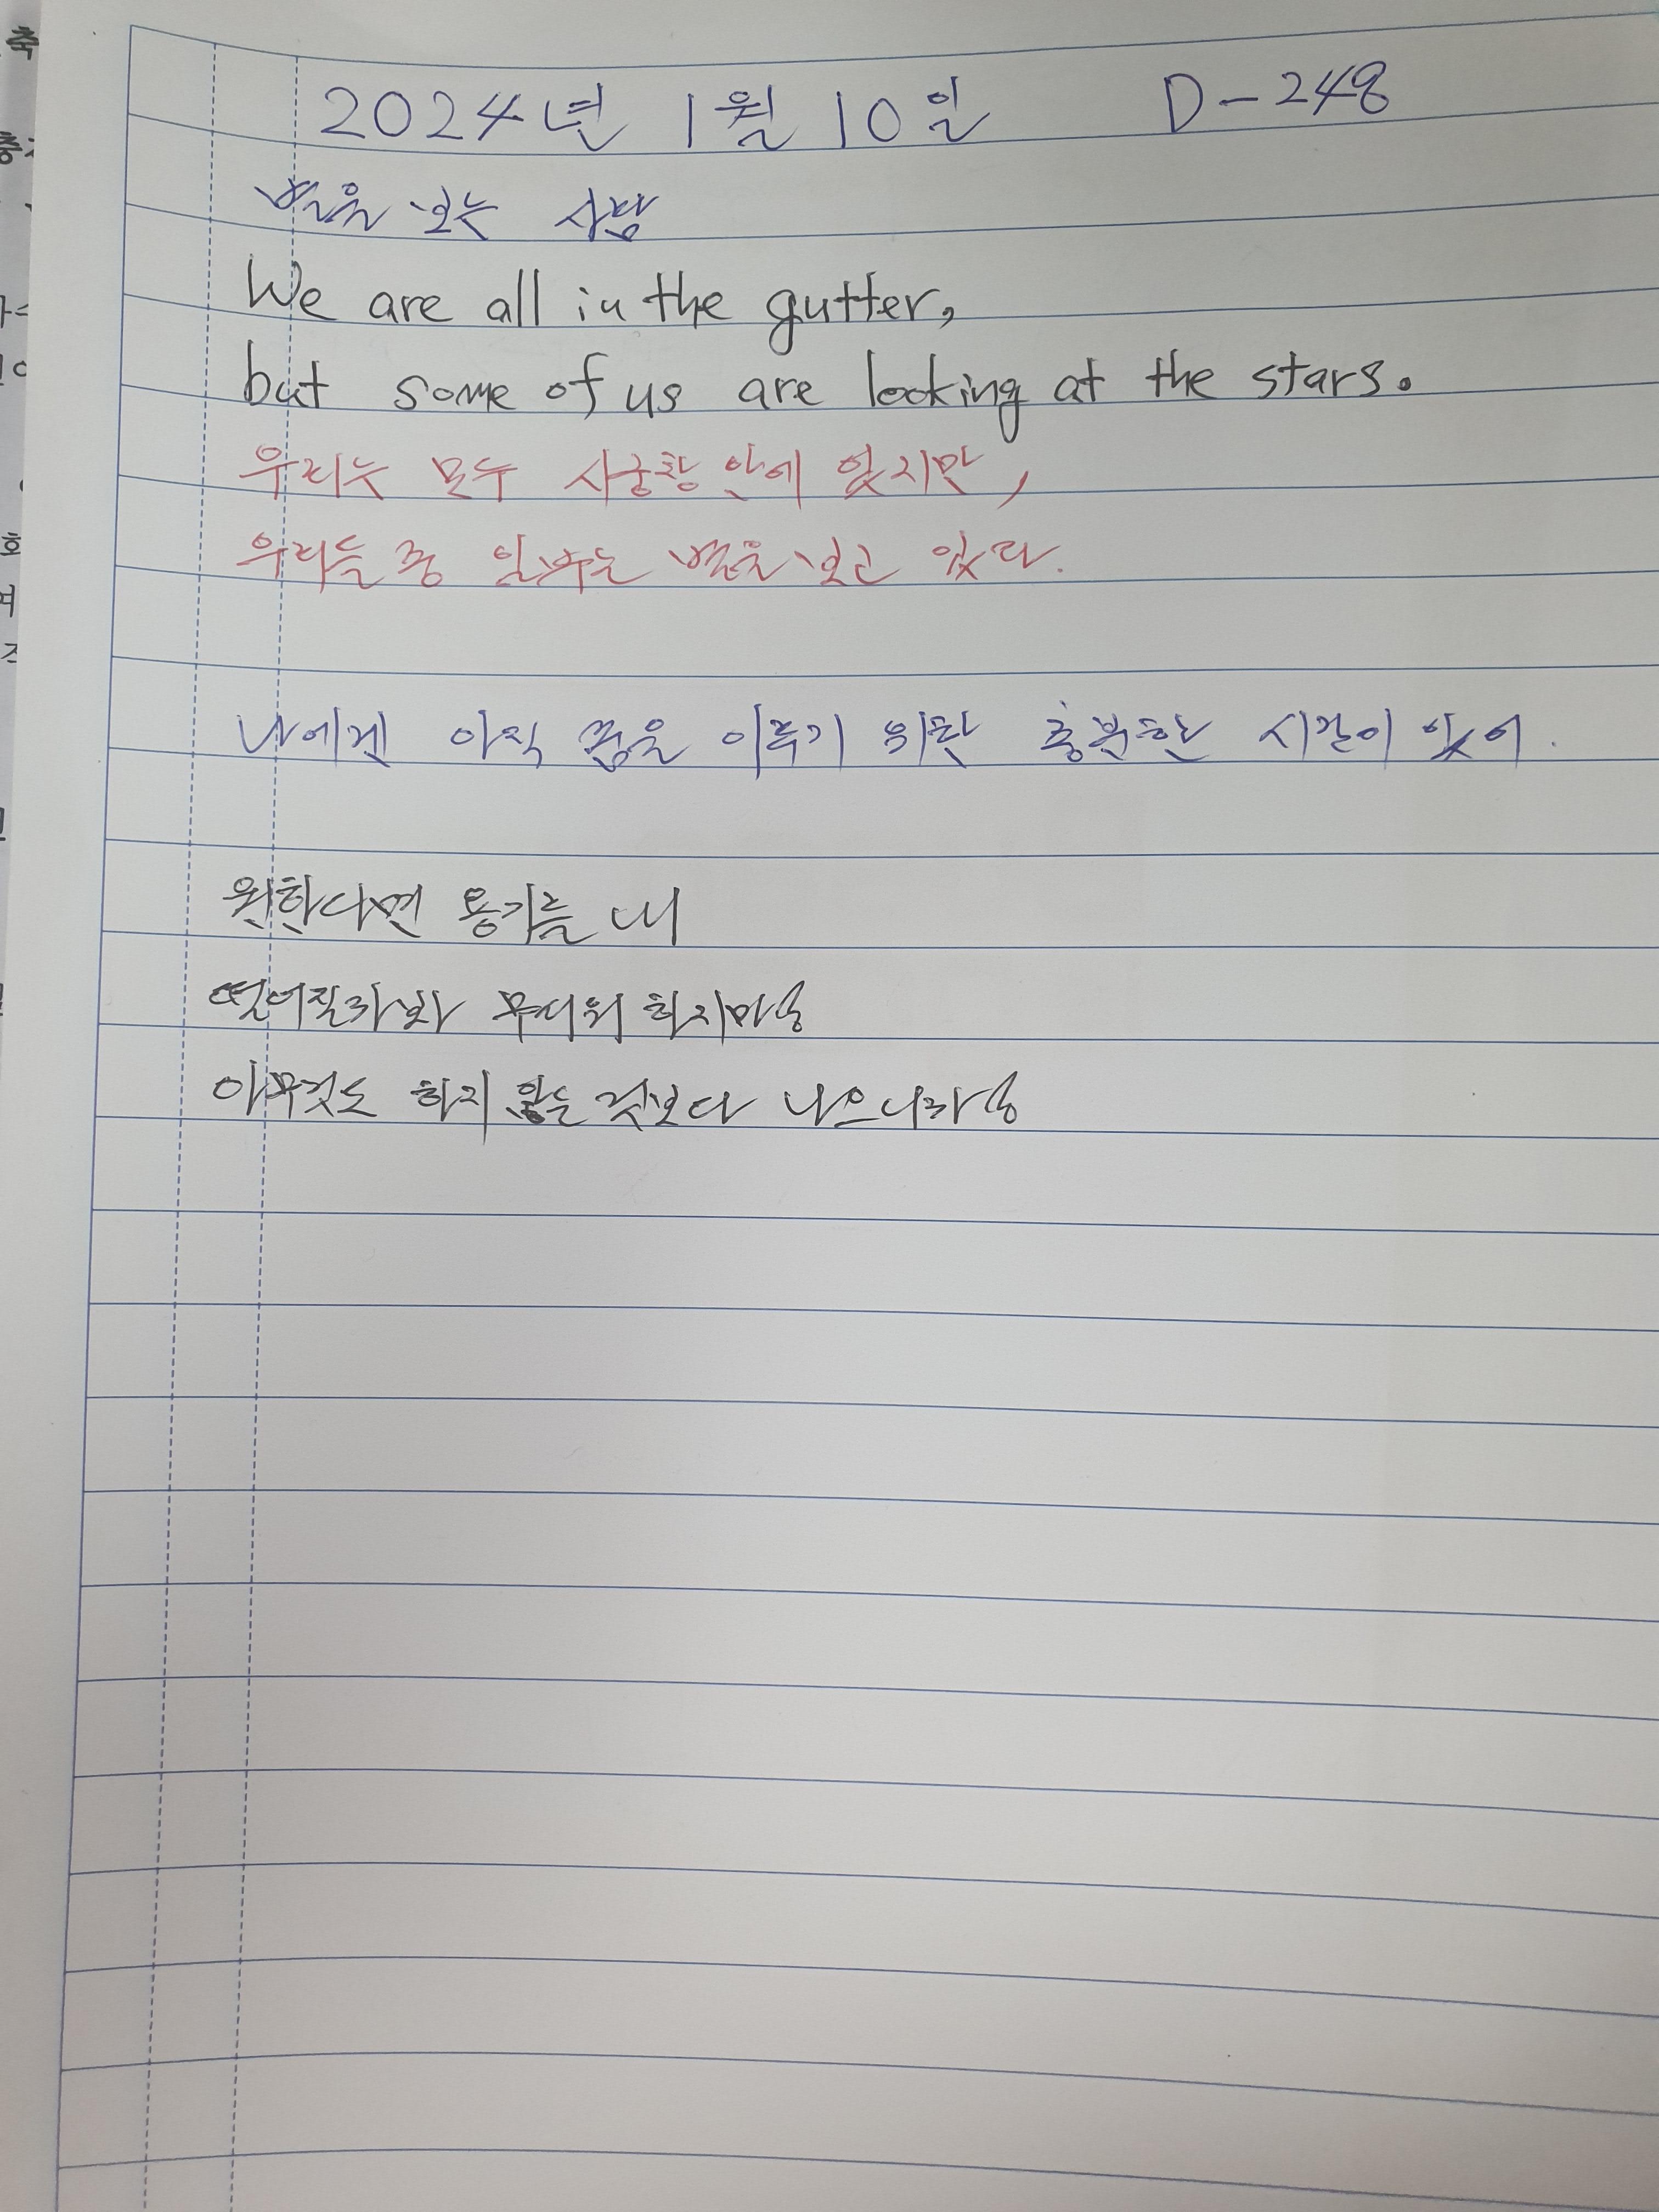 2024년 1월 10일 D-248
별을 보는 사람
We are all in the gutter,
but some of us are looking at the stars.
우리는 모두 시궁창 안에 있지만,
우리들 중 일부는 별을 보고 있다.
나에겐 아직 꿈을 이루기 위한 충분한 시간이 있어.
원한다면 용기를 내
떨어질라봐 무서워 하지마
아무것도 하지 않는 것보다 나으니까